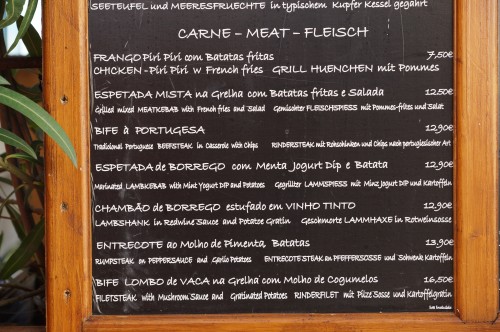 SEETEUFEL und MEERESFRUECHTE in typischem Kupfer Kessel gegahrt
CARNE - MEAT - FLEISCH
FRANGO Piri Piri com Batatas fritas 7,50€
CHICKEN-Piri Piri w French fries GRILL HUENCHEN mit Pommes
ESPETADA MISTA na Grelha com Batatas fritas e Salada 12,50€
Grilled mixed MEATKEBAB with French fries and Salad Gemischter FLEISCHSPIESS mit Pommes-frites und Salat
BIFE à PORTUGESA 12,90€
Tradicional Portuguese BEEFSTEAK in Casserole with Chips RINDERSTEAK mit Rohschinken und Chips nach portugiesischer Art
ESPETADA de BORREGO com Menta Jogurt Dip e Batata 12,90€
Marinated LAMBKEBAB with Mint Yogurt DIP and Potatoes Gegrillter LAMMSPIESS mit Minz Jogurt DIP und Kartoffeln
CHAMBÃO de BORREGO estufado em VINHO TINTO 12,90€
LAMBSHANK in Redwine Sauce and Potatoe Gratin Geschmorte LAMMHAXE in Rotweinsosse
ENTRECOTE ao Molho de Pimenta, Batatas 13,90€
RUMPSTEAK on PEPPERSAUCE and Garlic Potatoes ENTRECOTE STEAK an PFEFFERSOSSE und Schwenk Kartoffeln
BIFE LOMBO de VACA na Grelha com Molho de Cogumelos 16,50€
FILETSTEAK with Mushroom Sauce and Gratinated Potatoes RINDERFILET mit Pilze Sosse und Kartoffelgratin